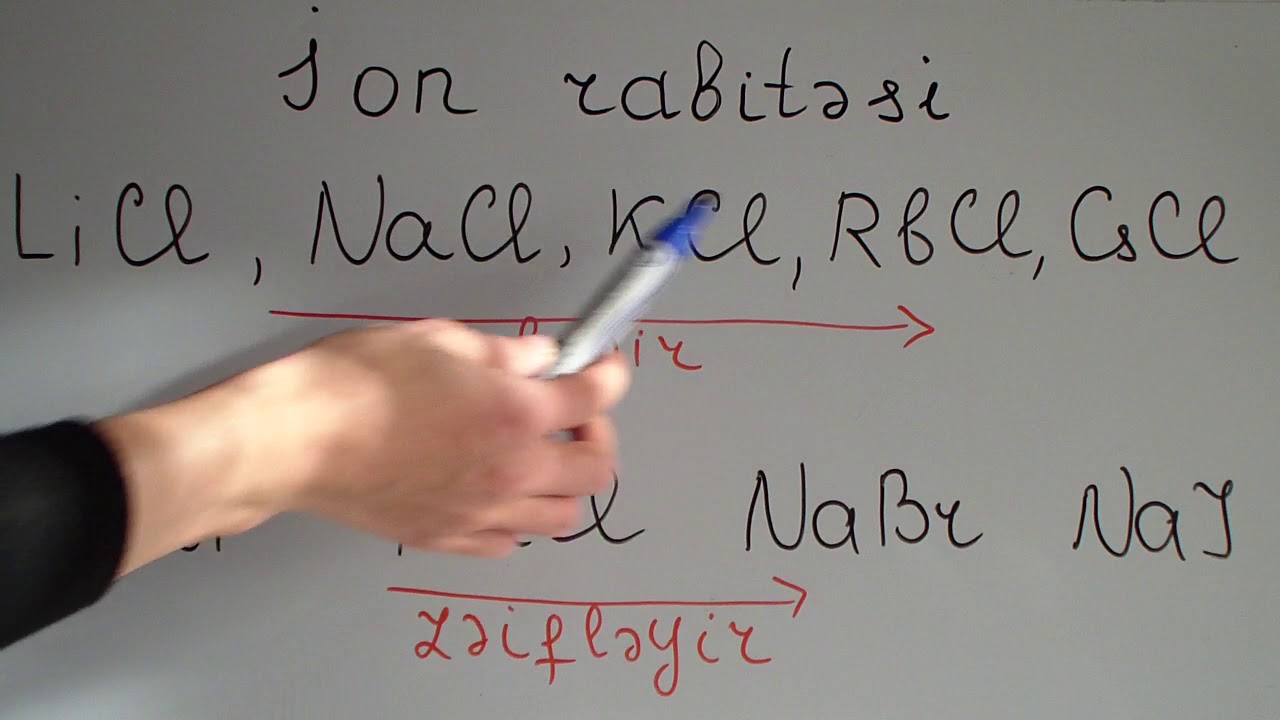 İon rabitəsi
LiCl, NaCl, KCl, RbCl, CsCl
NaBr NaJ
zəifləyir